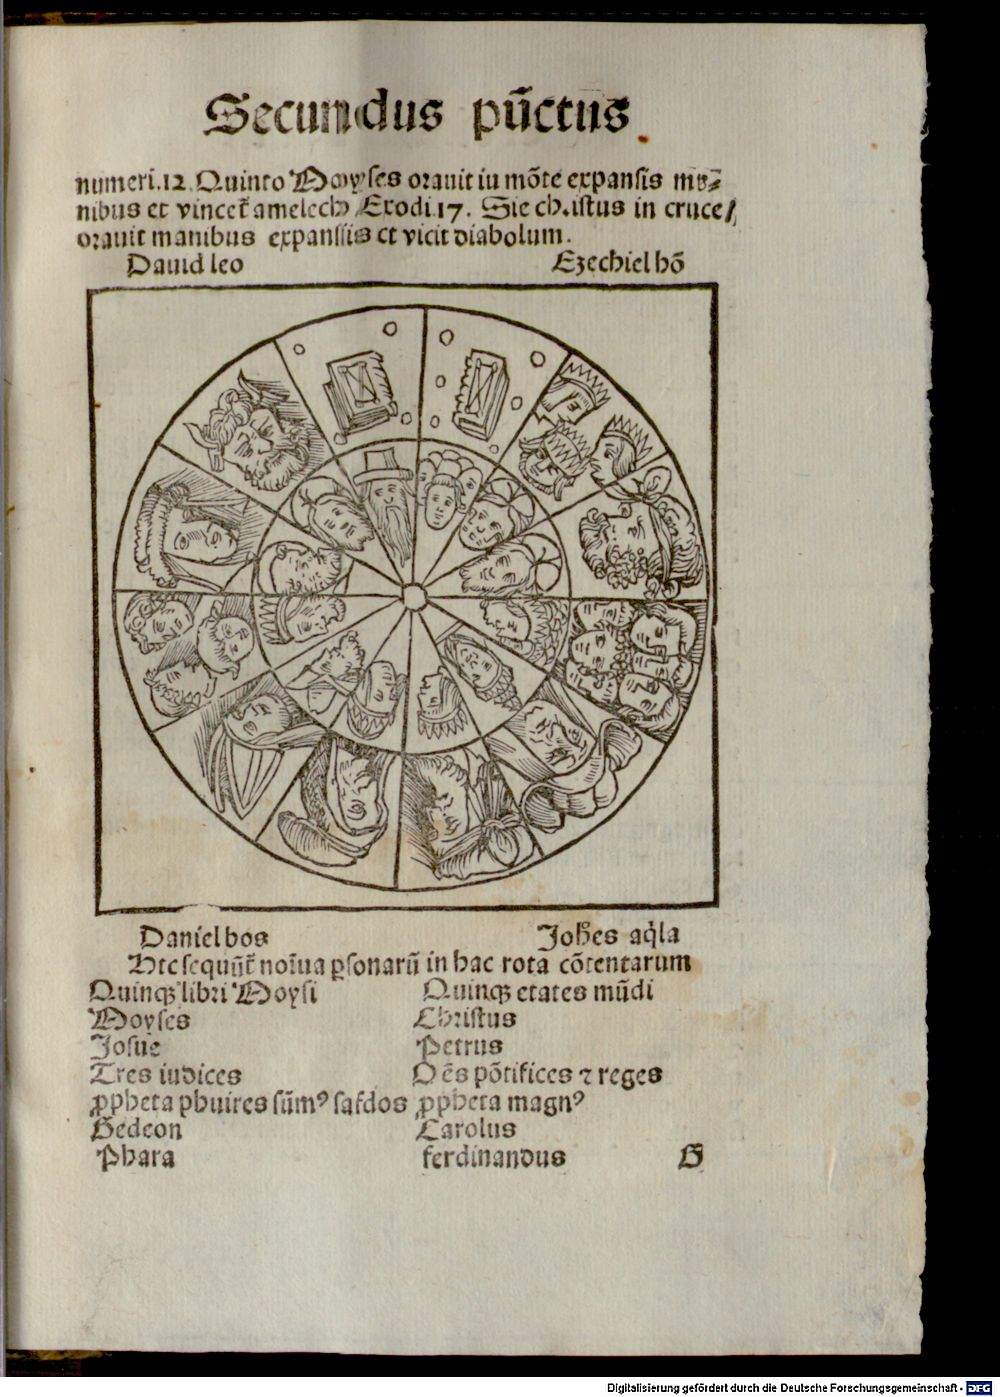 Secundus pūctus
numeri.12. Quinto Moyses orauit in mōte expansis ma⸗
nibus et vincet̄ amelech Exodi.17. Sic christus in cruce/
orauit manibus expansis et vicit diabolum.
Dauid leo Ezechiel hō
Daniel bos Joh̄es aq̇la
Hic sequūt̄ noīua ꝑsonarū in hac rota cōtentarum
Quinqꝫ libri Moysi Quinqꝫ etates mūdi
Moyses Christus
Josue Petrus
Tres iudices Oēs pōtifices ⁊ reges
ꝓpheta sūmꝰ ꝓpheta magnꝰ
Gedeon Carolus
Phara ferdinandus G
Digitalisierung gefördert durch die Deutsche Forschungsgemeinschaft - DFG